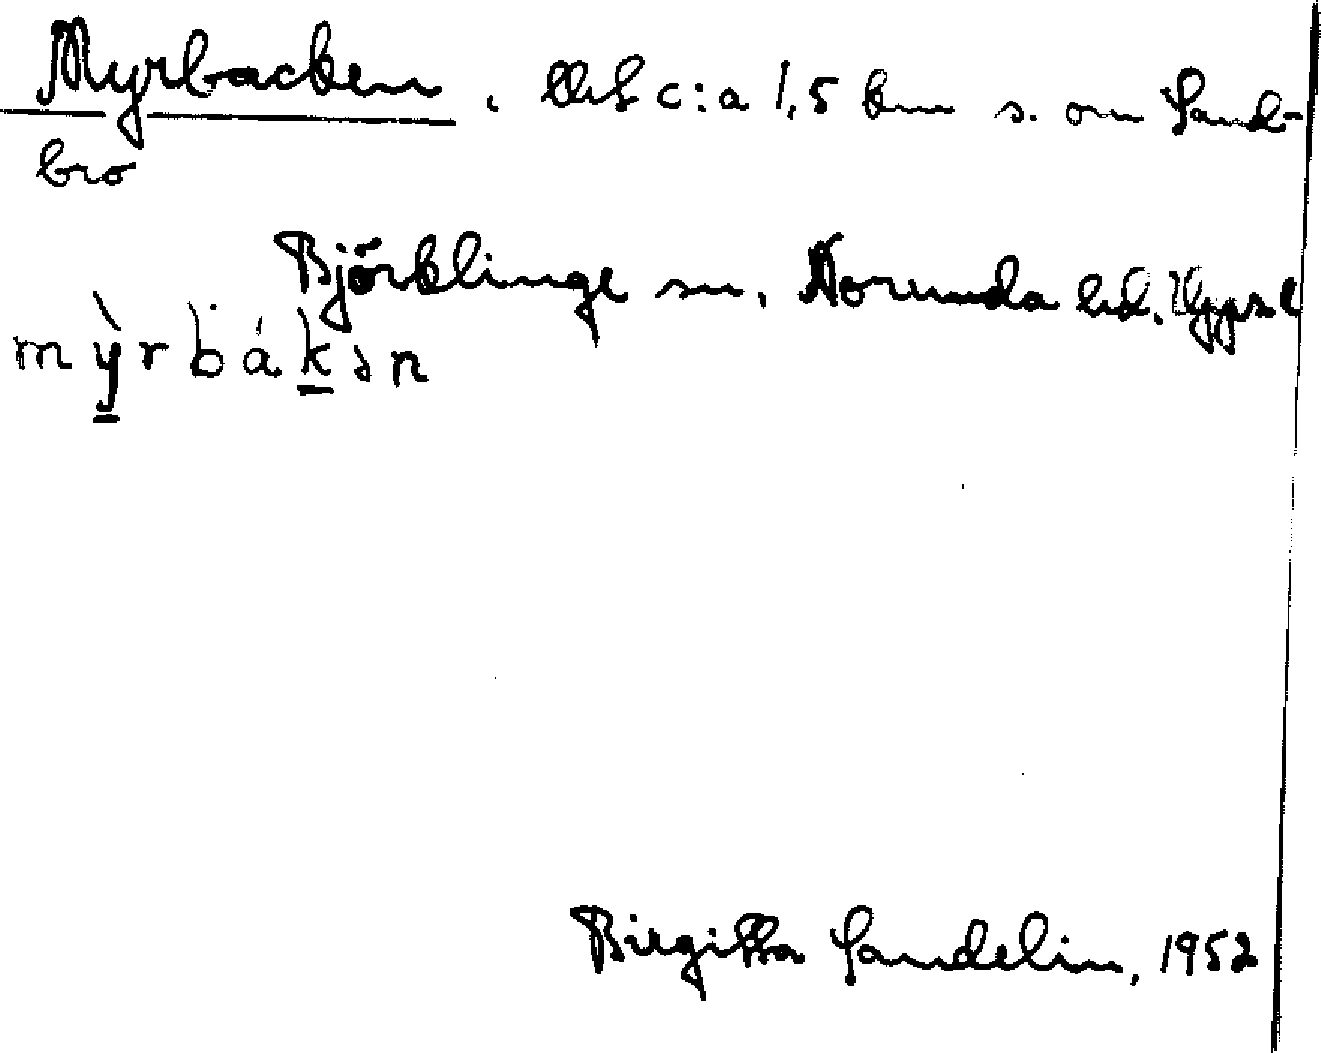 Myrbacken. Utsl c:a 1,5 km s. om Sand-
bro
Björklinge sn. Norunda hd. Uppsl
mỳrbákən
Birgitta Sandelin, 1952